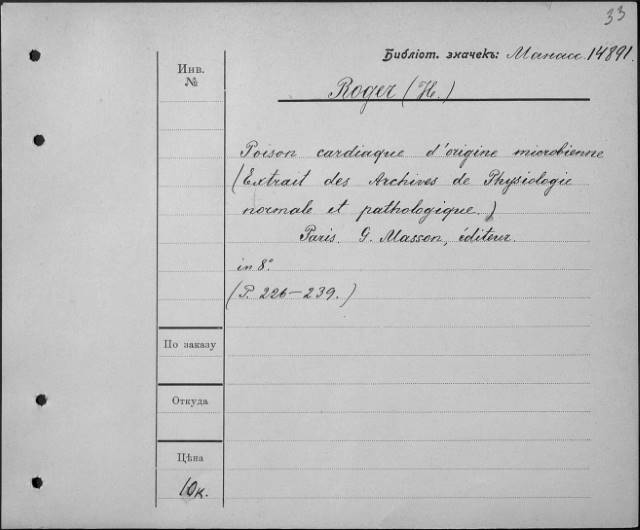 33
Библіот. значекъ: Манас. 14891.
Инв.
№
Roger (H.)
Poison cardiaque d'origine microbienne
(Extrait des Archives de Physiologie
normale et pathologique.)
Paris. G. Masson, éditeur.
in 8°.
(P. 226—239.)
По заказу
Откуда
Цѣна
10к.